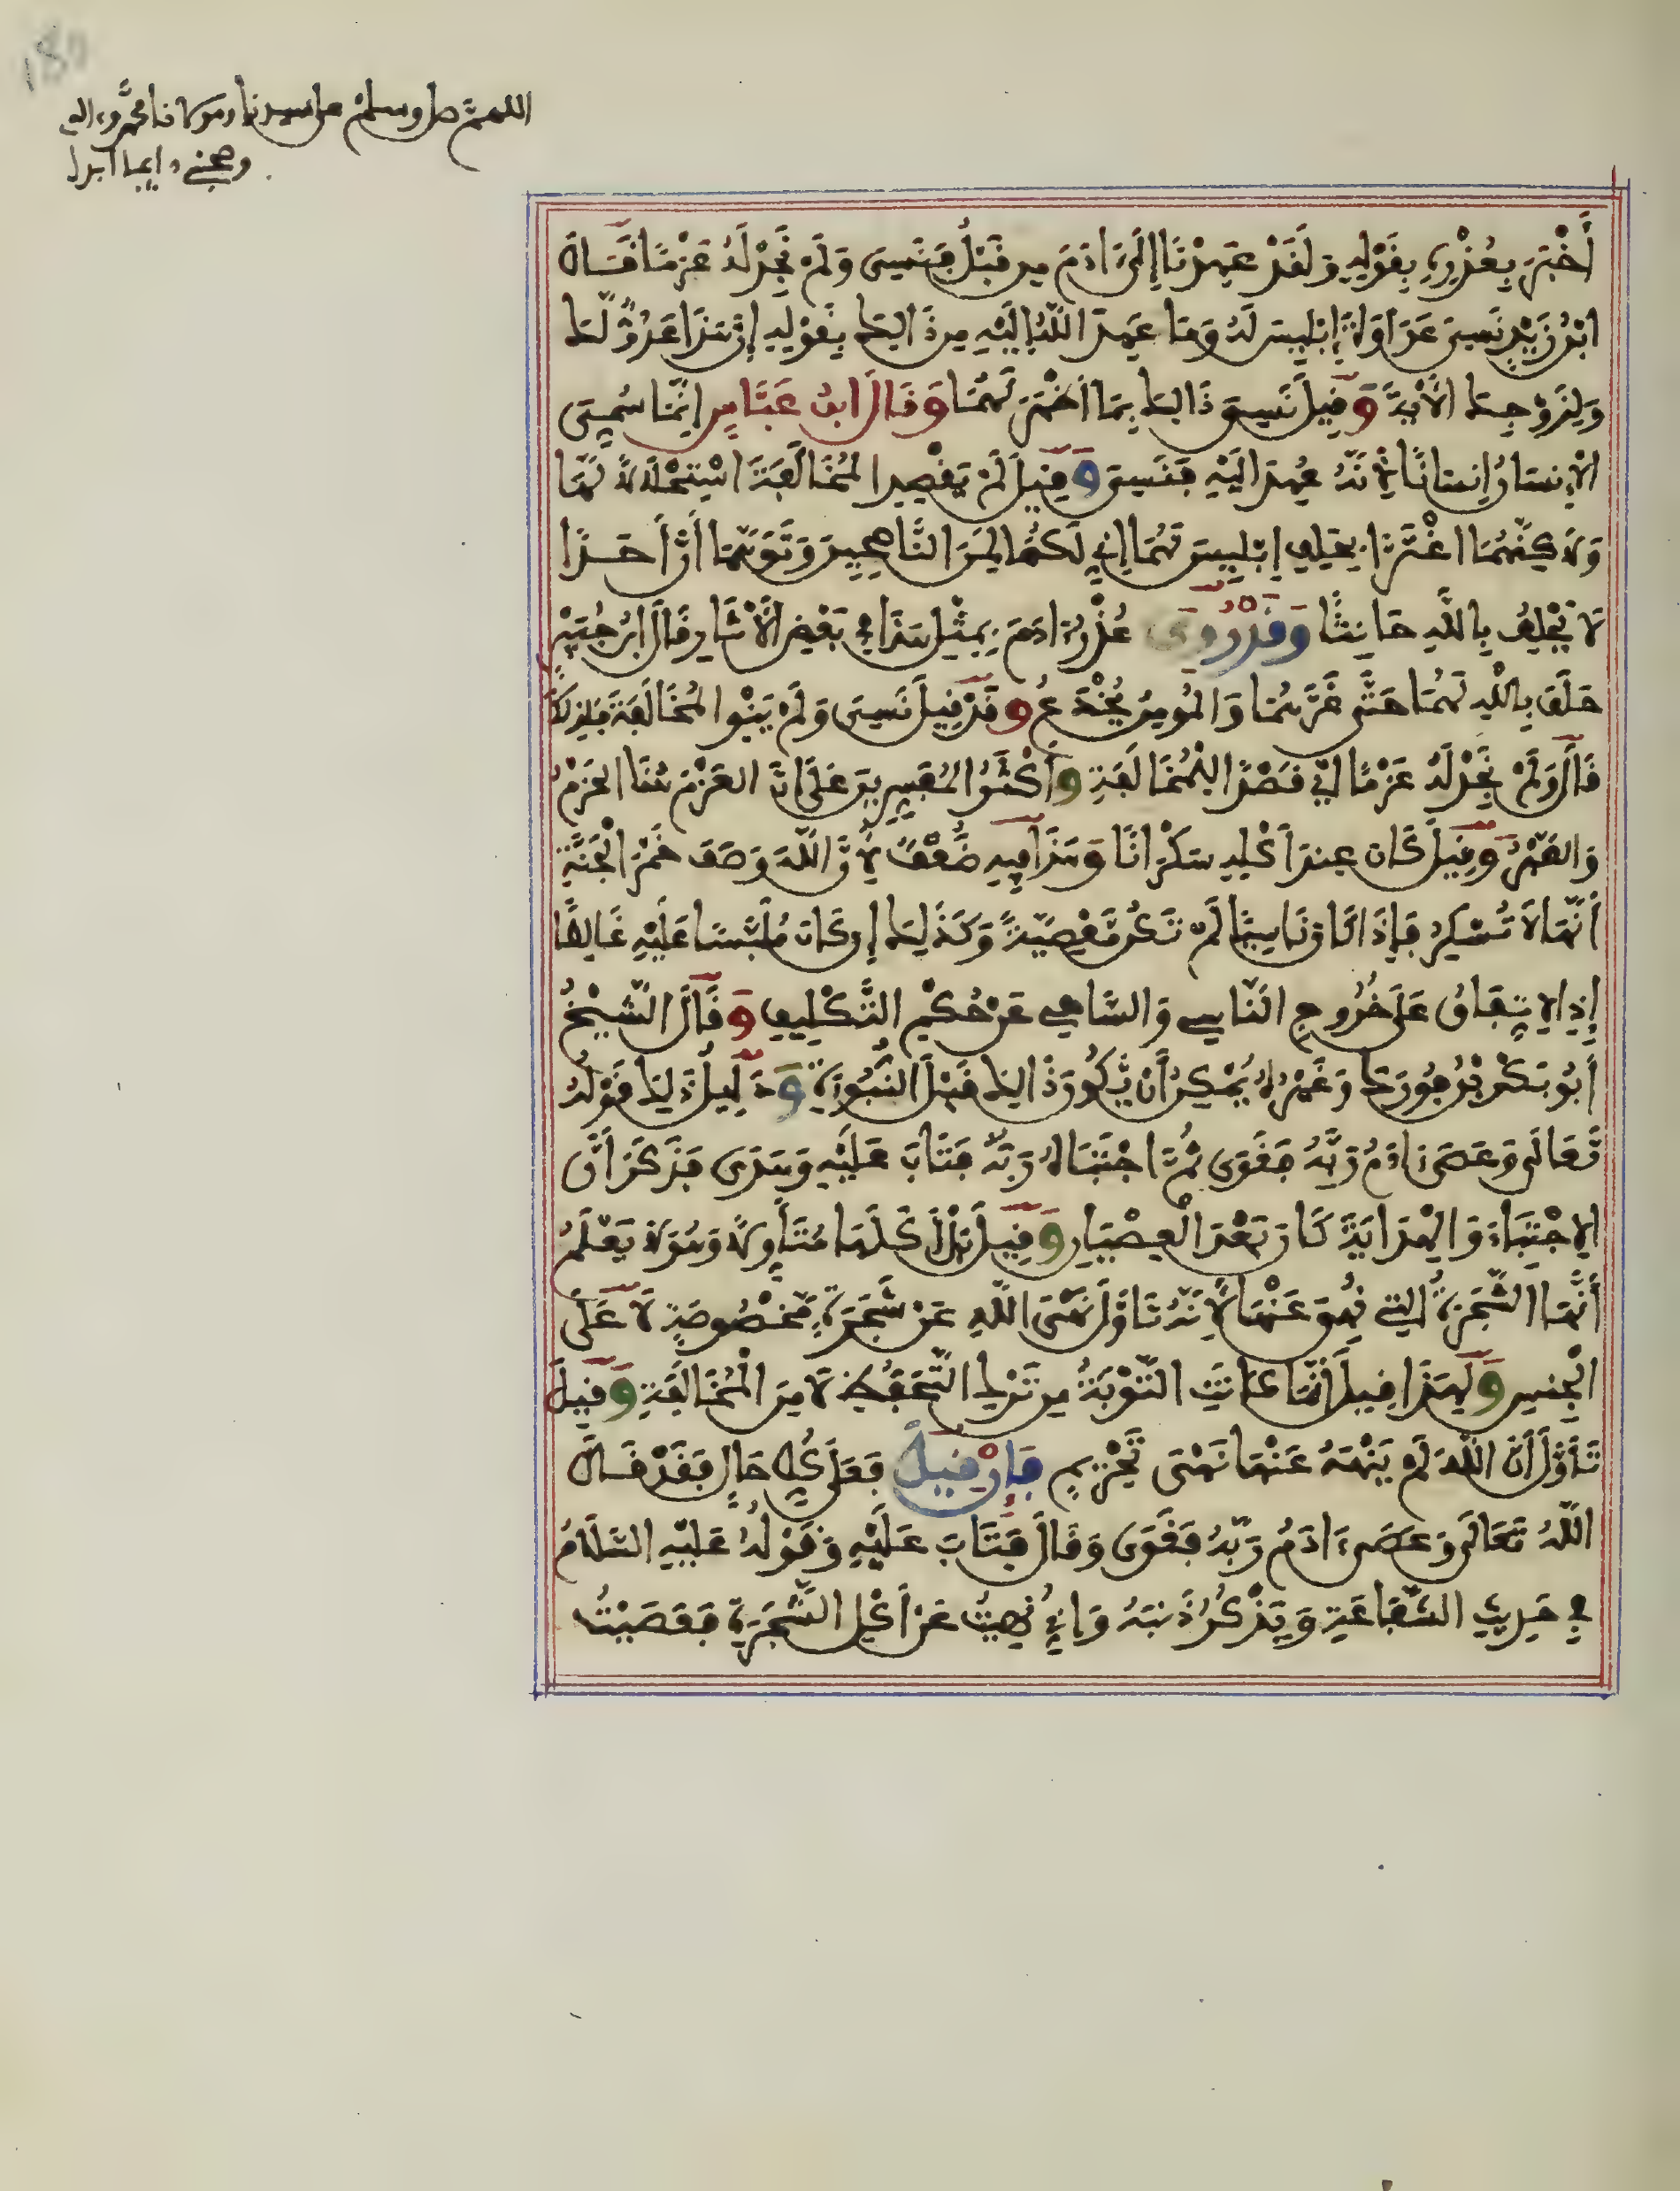 اللهم صل وسلم على سيدنا ومولانا محمد وءاله
وصحبه دايما ابدا
أَخْبَرَ بِعُذْرِهِ بِقَوْلِهِ وَلَقَدْ عَهِدْنَا إِلَىٰ ءَادَمَ مِن قَبْلُ فَنَسِيَ وَلَمْ نَجِدْ لَهُ عَزْمًا قَالَ
ابْنُ زَيْدٍ نَسِيَ عَدَاوَةَ إِبْلِيسَ لَهُ وَمَا عَهِدَ اللَّهُ إِلَيْهِ مِن ذَالِكَ بِقَوْلِهِ إِنَّ هَذَا عَدُوٌّ لَّكَ
وَلِزَوْجِكَ الْأَيَةَ وَقِيلَ نَسِيَ ذَالِكَ بِمَا أَظْهَرَ لَهُمَا وَقَالَ ابْنُ عَبَّاسٍ إِنَّمَا سُمِّيَ
الْإِنسَانُ إِنسَانًا لِأَنَّهُ عُهِدَ إِلَيْهِ فَنَسِيَ وَقِيلَ لَمْ يَقْصِدِ الْمُخَالَفَةَ اسْتِحْلَالًا لَهَا
وَلَاكِنَّهُمَا اغْتَرَّا بِحَلِفِ إِبْلِيسَ لَهُمَا إِنِّي لَكُمَا لَمِنَ النَّاصِحِينَ وَتَوَهَّمَا أَنَّ أَحَدًا
لَا يَحْلِفُ بِاللَّهِ حَانِثًا وَقَدْ رُوِيَ عُذْرُ ءَادَمَ بِمِثْلِ هَذَا فِي بَعْضِ الْأَثَارِ قَالَ ابْنُ جُبَيْرٍ
حَلَفَ بِاللَّهِ لَهُمَا حَتَّى غَرَّهُمَا وَالْمُومِنُ يُخْدَعُ وَقَدْ قِيلَ نَسِيَ وَلَمْ يَنْوِ الْمُخَالَفَةَ فَلِذَلِكَ
قَالَ وَلَمْ نَجِدْ لَهُ عَزْمًا أَيْ قَصْدًا لِلْمُخَالَفَةِ وَأَكْثَرُ الْمُفَسِّرِينَ عَلَى أَنَّ الْعَزْمَ هُنَا الْحَزْمُ
وَالصَّبْرُ وَقِيلَ كَانَ عِندَ أَكْلِهِ سَكْرَانًا وَهَذَا فِيهِ ضَعْفٌ لِأَنَّ اللَّهَ وَصَفَ خَمْرَ الْجَنَّةِ
أَنَّهَا لَا تُسْكِرُ فَإِذَا كَانَ نَاسِيًا لَمْ تَكُن مَّعْصِيَةً وَكَذَلِكَ إِن كَانَ مُلَبَّسًا عَلَيْهِ غَالِطًا
إِذِ الِاتِّفَاقُ عَلَى خُرُوجِ النَّاسِي وَالسَّاهِي عَنْ حُكْمِ التَّكْلِيفِ وَقَالَ الشَّيْخُ
أَبُو بَكْرِ بْنُ فُورَكَ وَغَيْرُهُ يُمْكِنُ أَن يَّكُونَ ذَالِكَ قَبْلَ النُّبُوءَةِ وَدَلِيلُ ذَلِكَ قَوْلُهُ
تَعَالَى وَعَصَى ءَادَمُ رَبَّهُ فَغَوَى ثُمَّ اجْتَبَاهُ رَبُّهُ فَتَابَ عَلَيْهِ وَهَدَى فَذَكَرَ أَنَّ
الِاجْتِبَاءَ وَالْهِدَايَةَ كَانَ بَعْدَ الْعِصْيَانِ وَقِيلَ بَلْ أَكَلَهَا مُتَأَوِّلًا وَهُوَ لَا يَعْلَمُ
أَنَّهَا الشَّجَرَةُ الَّتِي نُهِيَ عَنْهَا لِأَنَّهُ تَأَوَّلَ نَهْيَ اللَّهِ عَنْ شَجَرَةٍ مَّخْصُوصَةٍ لَا عَلَى
الْجِنسِ وَلِهَذَا قِيلَ إِنَّمَا كَانَتِ التَّوْبَةُ مِن تَرْكِ التَّحَفُّظِ لَا مِنَ الْمُخَالَفَةِ وَقِيلَ
تَأَوَّلَ أَنَّ اللَّهَ لَمْ يَنْهَهُ عَنْهَا نَهْيَ تَحْرِيمٍ فَإِنْ قِيلَ فَعَلَى كُلِّ حَالٍ فَقَدْ قَالَ
اللَّهُ تَعَالَى وَعَصَى ءَادَمُ رَبَّهُ فَغَوَى وَقَالَ فَتَابَ عَلَيْهِ وَقَوْلُهُ عَلَيْهِ السَّلَامُ
فِي حَدِيثِ الشَّفَاعَةِ وَيَذْكُرُ ذَنبَهُ وَإِنِّي نُهِيتُ عَنْ أَكْلِ الشَّجَرَةِ فَعَصَيْتُ